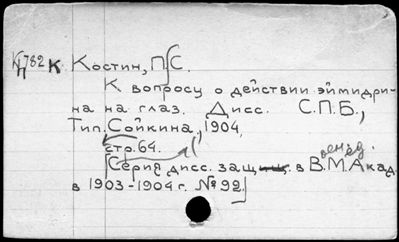 КП782 К Костин, П.С.
К вопросу о действии эймидри-
на на глаз. Дисс. С.П.Б.,
Тип. Сойкина, 1904,
стр. 64.
(Серия дисс. защ. в В.М.Акад.
в 1903-1904 г. № 92)